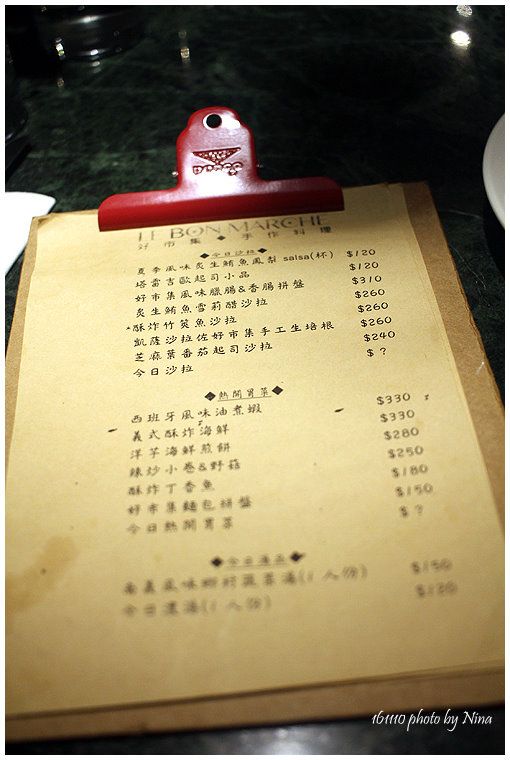 LE BON MARCHE
好市集◆手作料理
◆今日沙拉◆
夏季風味炙生鮪魚鳳梨 salsa(杯) $120
塔雷吉歐起司小品 $120
好市集風味臘腸&香腸拼盤 $310
炙生鮪魚雪莉醋沙拉 $260
酥炸竹筴魚沙拉 $260
凱薩沙拉佐好市集手工生培根 $260
芝麻葉番茄起司沙拉 $240
今日沙拉 $ ?
◆熱開胃菜◆
西班牙風味油煮蝦 $330
義式酥炸海鮮 $330
洋芋海鮮煎餅 $280
辣炒小卷&野菇 $250
酥炸丁香魚 $180
好市集麵包拼盤 $150
今日熱開胃菜 $ ?
◆今日湯品◆
南義風味鄉村蔬菜湯(1人份) $150
今日濃湯(1人份) $120
161110 photo by Nina